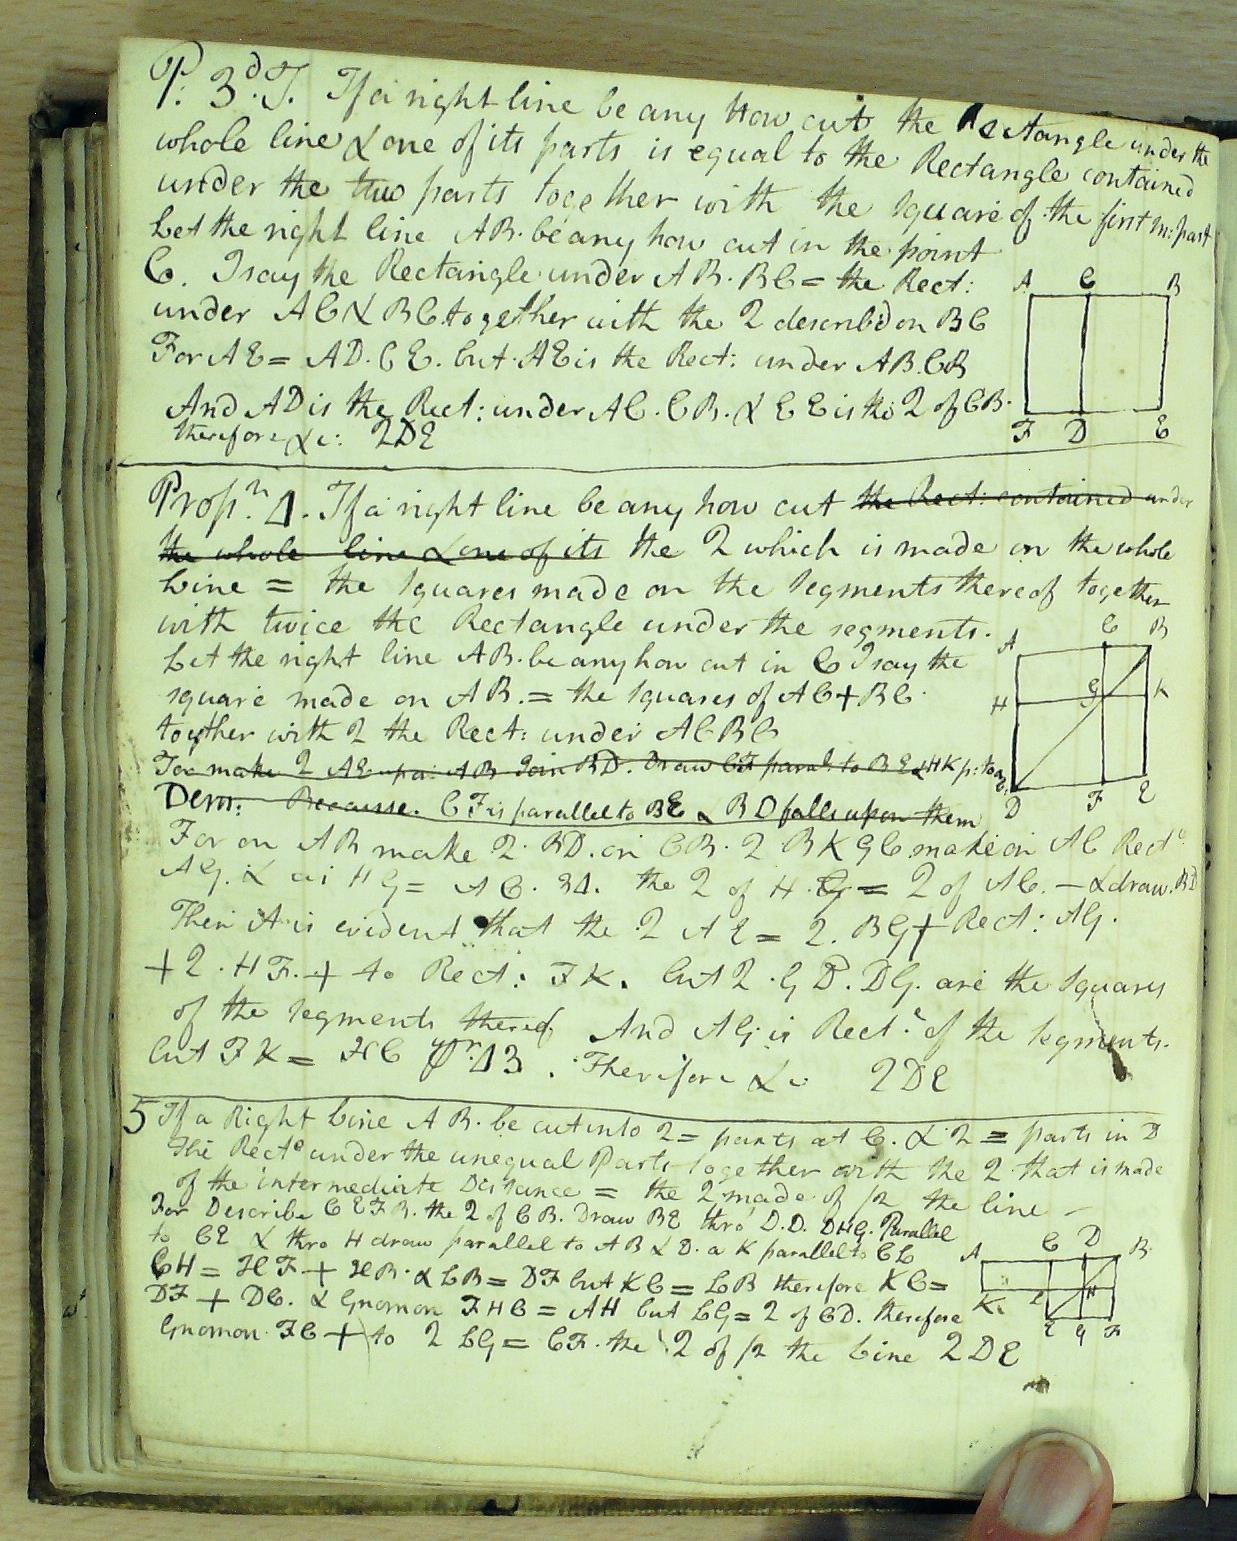 P. 3d. T. If a right line be any how cut the Rectangle under the
whole line & one of its parts is equal to the Rectangle contained
under the two parts together with the square of the first m: part
Let the right line AB. be any how cut in the point
C. I say the Rectangle under AB. BC = the Rect:
under AC & BC. together with the 2 described on BC
For AE = AD. CE. but. AE is the Rect: under AB. CB
And AD is the Rect: under AC. CB. & CE is the 2 of CB.
therefore &c: 2DE
A C B
F D E
Propn. 4. If a right line be any how cut the Rect: contained under
the whole line & one of its the 2 which is made on the whole
Line = the squares made on the segments thereof together
with twice the Rectangle under the segments.
Let the right line AB. be any how cut in C I say the
square made on AB. = the squares of AC + BC.
together with 2 the Rect: under AC BC
For make 2 AE upo: AB Join BD. Draw CF paral: to BE & HK p: to
Dem: Because. CF is parallel to BE & BD falls upon them
A C B
H G K
D F E
For on AB make 2. BD. on CB. 2 BKGC make on AC Rect
AG. & HG = AC. 34. the 2 of H.G = 2 of AC. — & draw. BD
Then it is evident that the 2 AE = 2. BG + Rect: AG.
+ 2. HF. + to Rect: FK. but 2. GD. DG. are the squares
of the segments thereof And AG is Rect. of the segments.
but FK = HC 43. Therefore &c 2DE
5 If a Right Line AB. be cut into 2 = parts at C. & 2 = parts in D
the Rect under the unequal Parts together with the 2 that is made
of the intermediate Distance = the 2 made of 1/2 the line —
For Describe CEFB. the 2 of CB. Draw BE thro D.D. DHG. Parallel
to CE & thro H draw parallel to AB & D. a K parallel to CL
CH = HF + HB. & LB = DF but KC = LB therefore KC =
DF + DC. & Gnomon FHC = AH but LG = 2 of CD. therefore
Gnomon. FC + to 2 LG = CF. the 2 of 1/2 the Line 2DE
A C D B
K L H
E G F